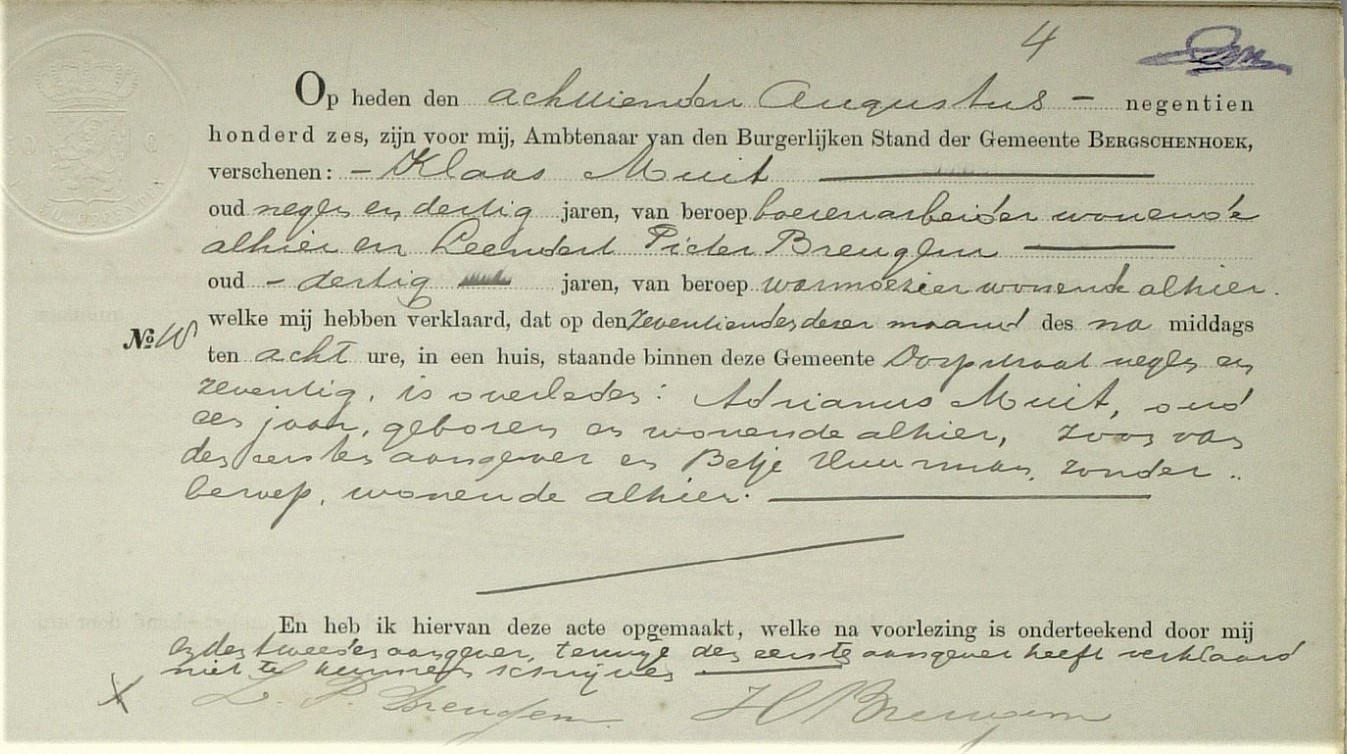 4
Op heden den achttienden Augustus – negentien
honderd zes, zijn voor mij, Ambtenaar van den Burgerlijken Stand der Gemeente BERGSCHENHOEK,
verschenen: – Klaas Muit
oud negen en dertig jaren, van beroep boerenarbeider wonende
alhier en Leendert Pieter Breugem
oud – dertig jaren, van beroep warmoezier wonende alhier.
welke mij hebben verklaard, dat op den zeventienden dezer maand des na middags
No
ten acht ure, in een huis, staande binnen deze Gemeente Dorpstraat negen en
zeventig, is overleden: Adrianus Muit, oud
een jaar, geboren en wonende alhier, zoon van
den eersten aangever en Betje Huurman, zonder
beroep, wonende alhier.
En heb ik hiervan deze acte opgemaakt, welke na voorlezing is onderteekend door mij
en den tweeden aangever, terwijl den eersten aangever heeft verklaard
niet te kunnen schrijven
X L. P. Breugem HC Breugem